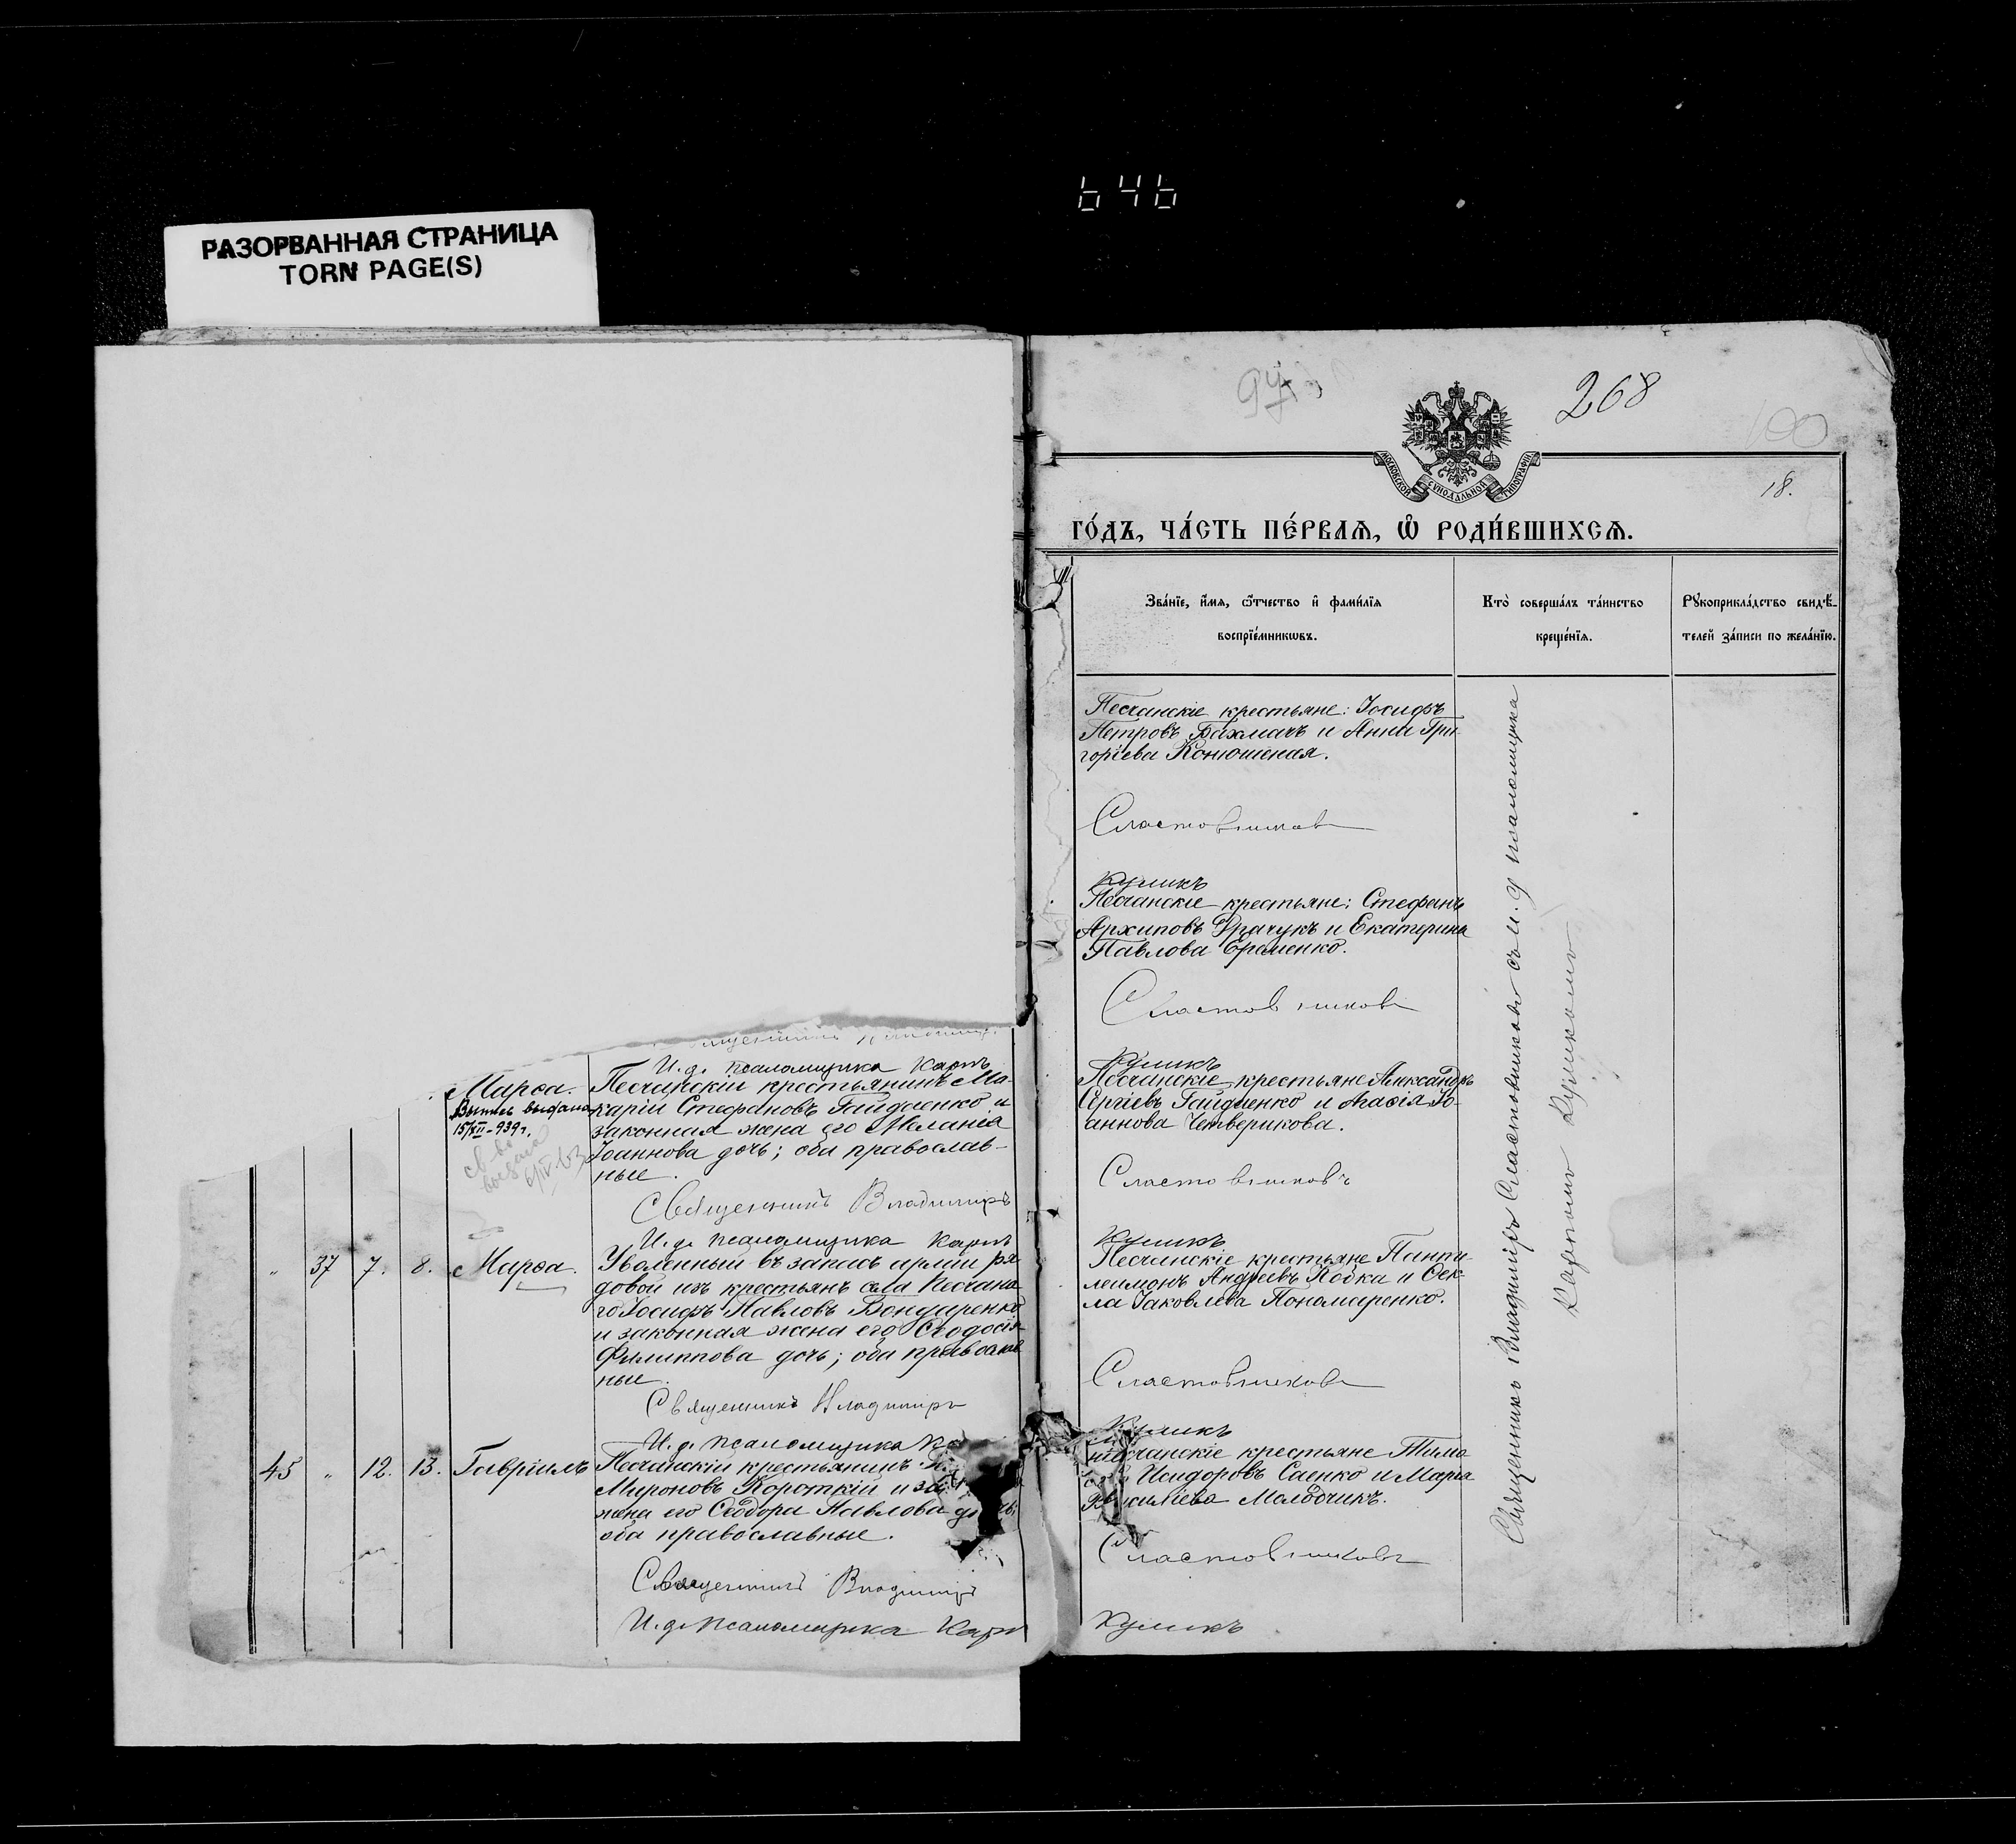 646
РАЗОРВАННАЯ СТРАНИЦА
TORN PAGE(S)
И. д. псаломщика Карпъ
Марѳа.
Выпись выдана
15/XII-939 г.
Песчанскій крестьянинъ Ма-
карій Стефановъ Гайдаенко и
законная жена его Меланія
Іоаннова дочь; оба православ-
ные.
Священникъ Владиміръ
И. д. псаломщика Карпъ
„ 37 7. 8. Марѳа.
Уволенный въ запасъ арміи ря-
довой изъ крестьянъ села Песчана-
го Іосифъ Павловъ Бондаренко
и законная жена его Ѳеодосія
Филиппова дочь; оба православ
ные.
Священникъ Владиміръ
И. д. псаломщика
45 „ 12. 13. Гавріилъ
Песчанскій крестьянинъ
Мироновъ Короткій и
жена его Ѳеодора Павлова
оба православные.
Священникъ Владиміръ
И. д. псаломщика Карп
268
100
18.
МОСКОВСКОЙ СѴНОДАЛЬНОЙ ТИПОГРАФІИ
ГО́ДЪ, ЧА́СТЬ ПЕ́РВАѦ, Ѡ҆ РОДИ́ВШИХСѦ.
Зва́нїе, и҆́мѧ, ѻ҆́тчество и҆ фами́лїѧ
воспрїе́мникѡвъ.
Кто̀ соверша́лъ та́инство
креще́нїѧ.
Рꙋкоприкла́дство свидѣ́-
телей за́писи по жела́нїю.
Песчанскіе крестьяне: Іосифъ
Петровъ Бахмачъ и Анна Гри-
горіева Конюшеная.
Сластовниковъ
Куликъ
Песчанскіе крестьяне: Стефанъ
Архиповъ Драчукъ и Екатерина
Павлова Ероменко.
Сластовниковъ
Куликъ
Песчанскіе крестьяне Александръ
Сергіевъ Гайдаенко и Агаѳія Іо-
аннова Четверикова.
Сластовниковъ
Куликъ
Песчанскіе крестьяне Панте
леимонъ Андреевъ Кодка и Ѳек-
ла Іаковлева Пономаренко.
Сластовниковъ
Куликъ
Песчанскіе крестьяне Тимо
Исидоровъ Саенко и Марія
Василіева Молодчикъ.
Сластовниковъ
Куликъ
Священникъ Владиміръ Сластовниковъ съ и. д псаломщика
Карпомъ Куликомъ